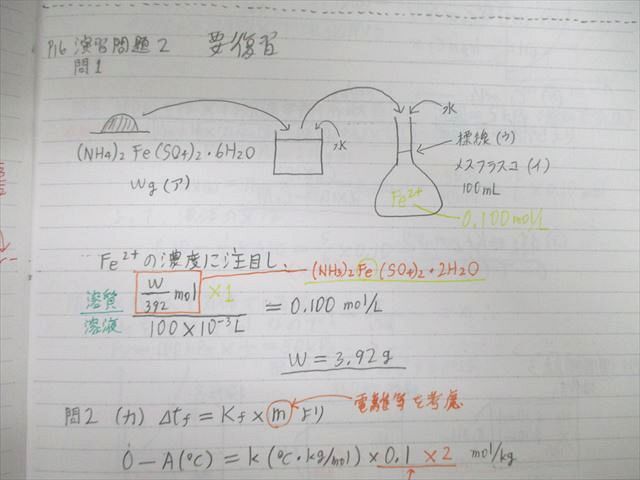 P16 演習問題2 要復習
問1
水
水
(NH4)2 Fe(SO4)2・6H2O
Wg (ア)
標線(ウ)
メスフラスコ(イ)
100mL
Fe2+
0.100mol/L
Fe2+の濃度に注目し、
(NH3)2Fe(SO4)2・2H2O
溶質 W/392 mol ×1
溶液 100×10-3L = 0.100 mol/L
W = 3.92g
問2 (カ) Δtf = Kf × m より 電離等を考慮
0 - A(℃) = k(℃・kg/mol) × 0.1 × 2 mol/kg